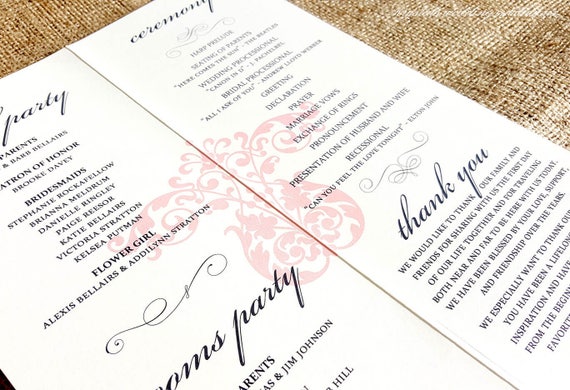 party
PARENTS
& BARB BELLAIRS
MATRON OF HONOR
BROOKE DAVEY
BRIDESMAIDS
STEPHANIE ROCKAFELLOW
BRIANNA MELDRUM
DANIELLE RINGLEY
PAIGE REESOR
KATIE BELLAIRS
VICTORIA STRATTON
KELSEA PUTMAN
FLOWER GIRL
ALEXIS BELLAIRS & ADDILYNN STRATTON
ooms party
PARENTS
AS & JIM JOHNSON
ER HILL
ceremony
HARP PRELUDE
SEATING OF PARENTS
"HERE COMES THE SUN" - THE BEATLES
WEDDING PROCESSIONAL
"CANON IN D" - J. PACHELBEL
BRIDAL PROCESSIONAL
"ALL I ASK OF YOU" - ANDREW LLOYD WEBBER
GREETING
DECLARATION
PRAYER
MARRIAGE VOWS
EXCHANGE OF RINGS
PRONOUNCEMENT
PRESENTATION OF HUSBAND AND WIFE
RECESSIONAL
"CAN YOU FEEL THE LOVE TONIGHT" - ELTON JOHN
thank you
WE WOULD LIKE TO THANK OUR FAMILY AND
FRIENDS FOR SHARING WITH US THE FIRST DAY
OF OUR LIFE TOGETHER AND FOR TRAVELING
BOTH NEAR AND FAR TO BE HERE WITH US TODAY.
WE HAVE BEEN BLESSED BY YOUR LOVE, SUPPORT,
AND FRIENDSHIP OVER THE YEARS.
WE ESPECIALLY WANT TO THANK OUR
YOU HAVE BEEN A LIFELONG
INSPIRATION AND HAVE
FROM THE BEGINN
FAVORIT